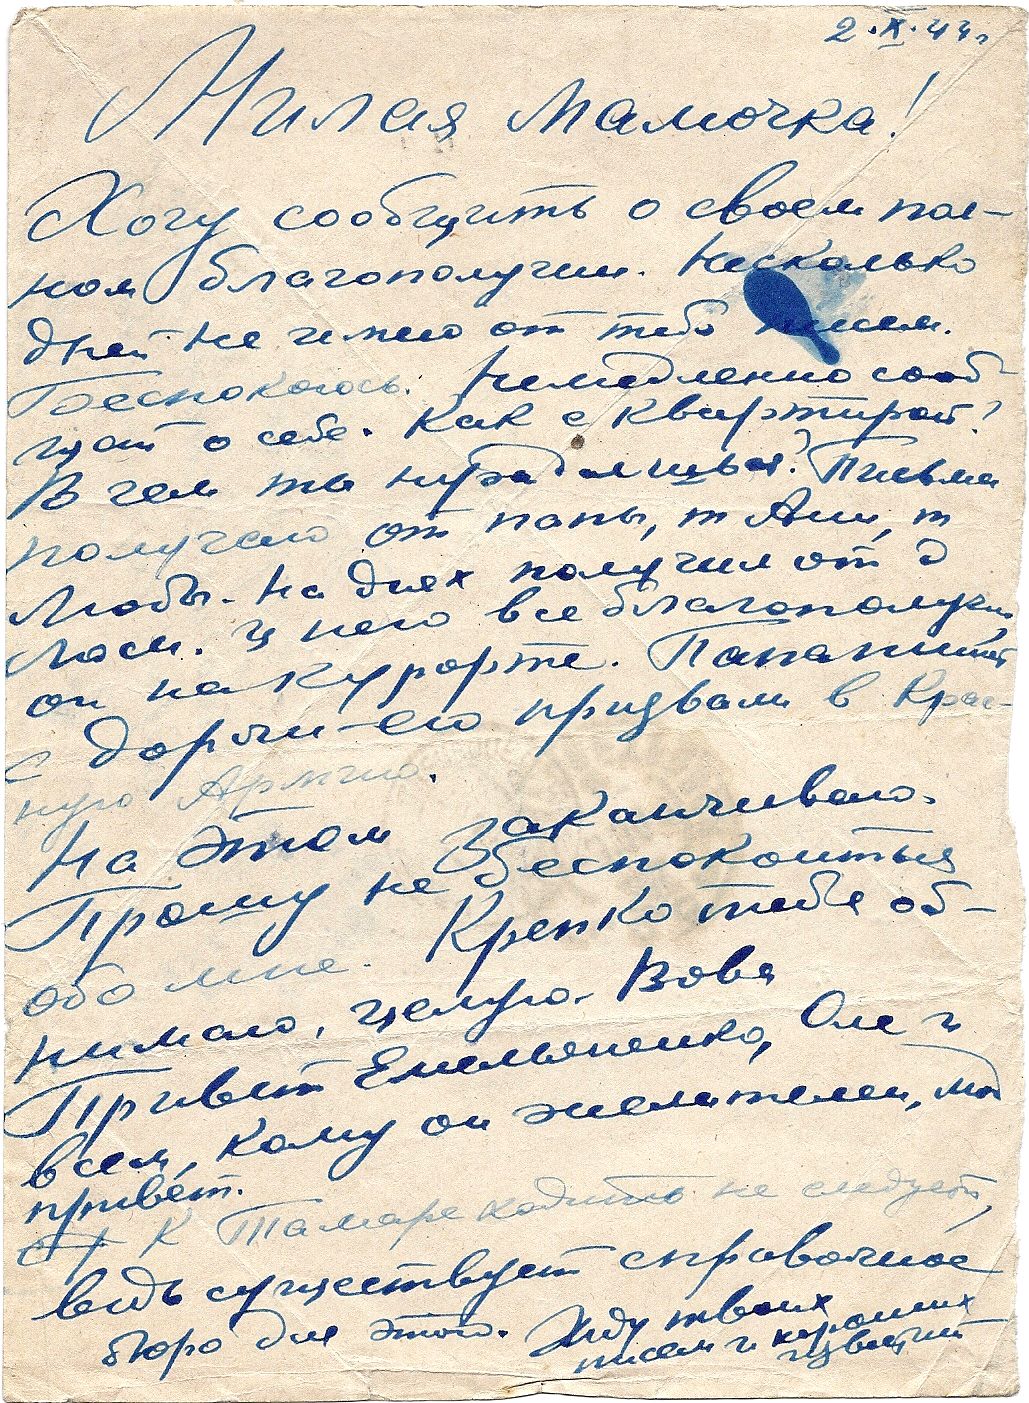 2.X.44г
Милая Мамочка!
Хочу сообщить о своем пол-
ном благополучии. Несколько
дней не имею от тебя писем.
Беспокоюсь. Немедленно сооб-
щай о себе. Как с квартирой?
В чем ты нуждаешься? Письма
получаю от папы, т Ани, т
Любы. На днях получил от д
Лоси. У него все благополучно,
он на курорте. Папа пишет
с дороги - его призвали в Крас-
ную Армию.
На этом заканчиваю.
Прошу не беспокоиться
обо мне. Крепко тебя об-
нимаю, целую. Вова
Привет Емельяненко, Оле и
всем, кому он желателен, мой
привет.
К Тамаре ходить не следует,
ведь существует справочное
бюро для этого. Жду твоих
писем и хороших
известий